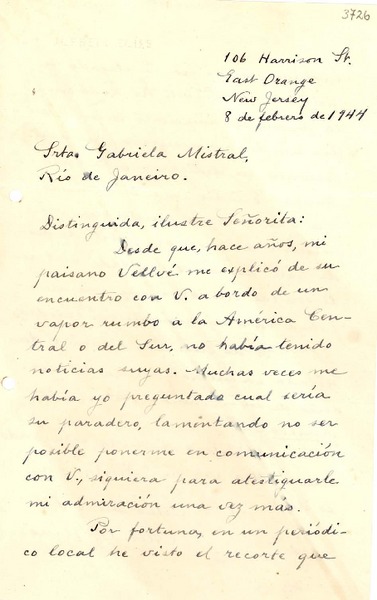 3726
106 Harrison St.
East Orange
New Jersey
8 de febrero de 1944
Srta Gabriela Mistral,
Río de Janeiro.
Distinguida, ilustre Señorita:
Desde que, hace años, mi
paisano Vellvé me explicó de su
encuentro con V. a bordo de un
vapor rumbo a la América Cen-
tral o del Sur, no había tenido
noticias suyas. Muchas veces me
había yo preguntado cual sería
su paradero, lamentando no ser
posible ponerme en comunicación
con V., siquiera para atestiguarle
mi admiración una vez más.
Por fortuna, en un periódi-
co local he visto el recorte que